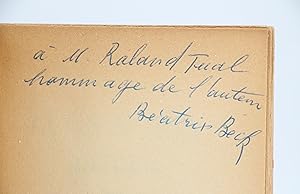 à M. Roland Tual
hommage de l'auteur
Béatrix Beck